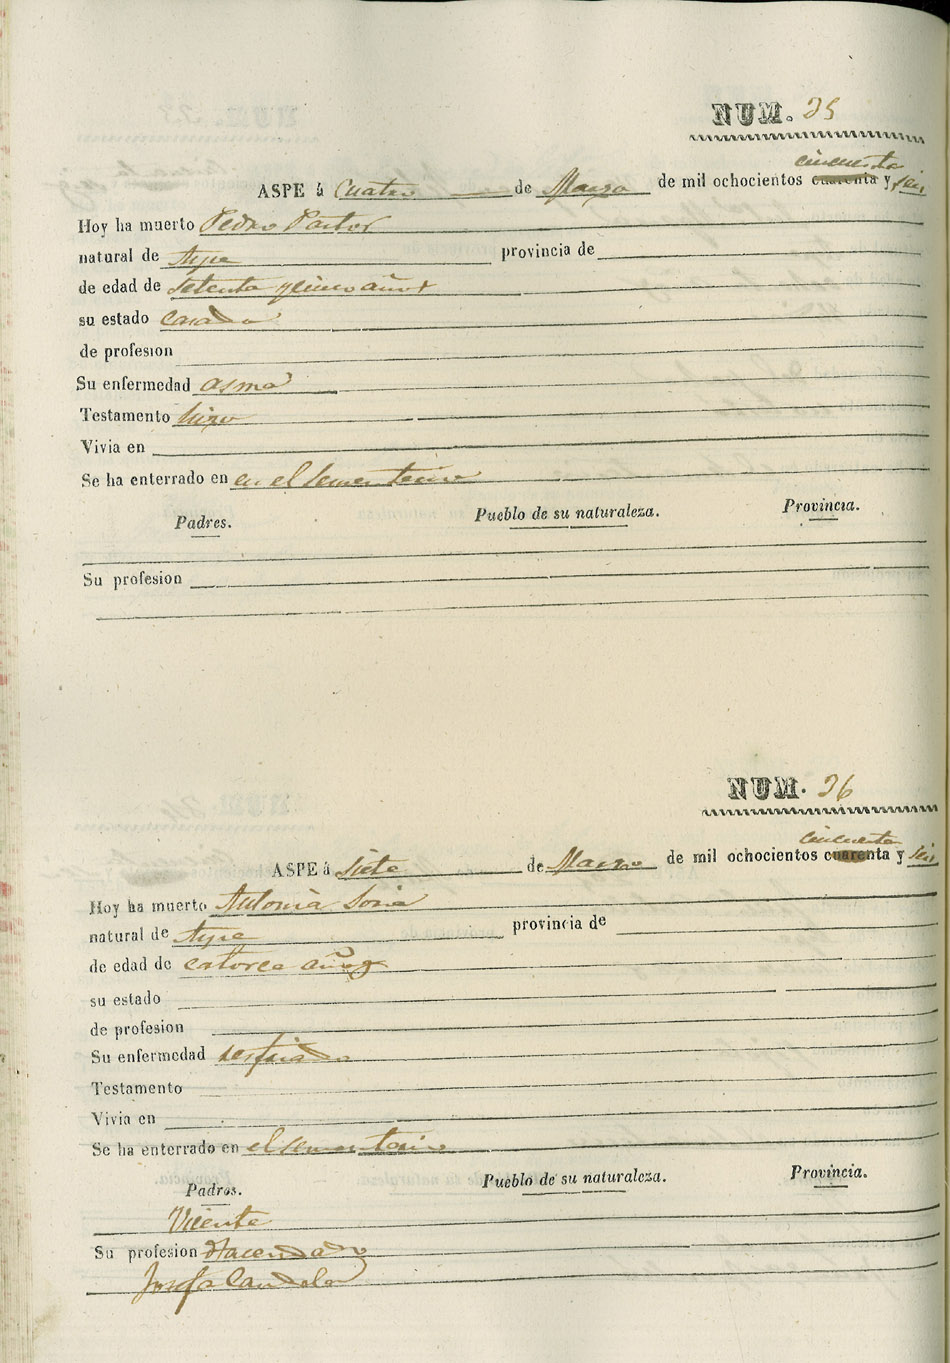 NUM. 35
cincuenta
ASPE á Cuatro de Marzo de mil ochocientos cuarenta y seis
Hoy ha muerto Pedro Pastor
natural de Aspe provincia de
de edad de setenta y cinco años
su estado casado
de profesion
Su enfermedad asma
Testamento hizo
Vivia en
Se ha enterrado en en el sementerio
Padres. Pueblo de su naturaleza. Provincia.
Su profesion
NUM. 36
cincuenta
ASPE á siete de Marzo de mil ochocientos cuarenta y seis
Hoy ha muerto Antonia Soria
natural de Aspe provincia de
de edad de catorce años
su estado
de profesion
Su enfermedad resfriado
Testamento
Vivia en
Se ha enterrado en el sementerio
Padres. Pueblo de su naturaleza. Provincia.
Vicente
Su profesion Hacendado
Josefa Candela